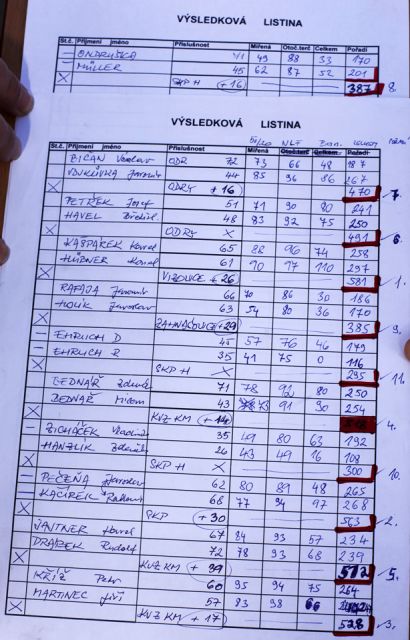 VÝSLEDKOVÁ LISTINA
St.č. Příjmení jméno Příslušnost Mířená Otoč.terč Celkem Pořadí
– ONDRUŠKA VI 49 88 33 170
– MÜLLER 45 62 87 52 201
X SKP H +16 387 8.
VÝSLEDKOVÁ LISTINA
St.č. Příjmení jméno Příslušnost Mířená Otoč.terč Celkem Pořadí
BIČAN Václav ODR 72 73 66 48 187
44 85 96 86 267
X ODRY +16 470 7.
PETŘEK Josef 51 71 90 80 241
HAVEL 48 83 92 75 250
X ODRY X 491 6.
KAŠPÁREK Karel 65 88 96 74 258
HÜBNER Karel 61 90 97 110 297
X +26 581 1.
RAFAJA Jaromír 66 70 86 30 186
HOLÍK Jaroslav 63 54 80 36 170
X +29 385 9.
– EHRLICH D 45 57 76 46 179
– EHRLICH R 35 41 75 0 116
X SKP H X 295 11.
BEDNÁŘ Zdeněk 71 78 92 80 250
BEDNÁŘ 43 73 91 90 254
X KVZ KM +14 4.
– ZICHÁČEK Vladimír 35 49 80 63 192
– HANZLÍK Zdeněk 26 43 49 16 108
X SKP H X 300 10.
– PEČEŇA Jaroslav 62 80 89 48 265
– KAČÍREK 68 77 94 97 268
X SKP +30 563 2.
Karel 67 84 93 57 234
DRÁBEK Rudolf 72 78 93 68 239
X KVZ KM +39 512 5.
KŘÍŽ Petr 60 95 94 75 264
MARTINEC Jiří 57 83 98 66
X KVZ KM +17 528 3.